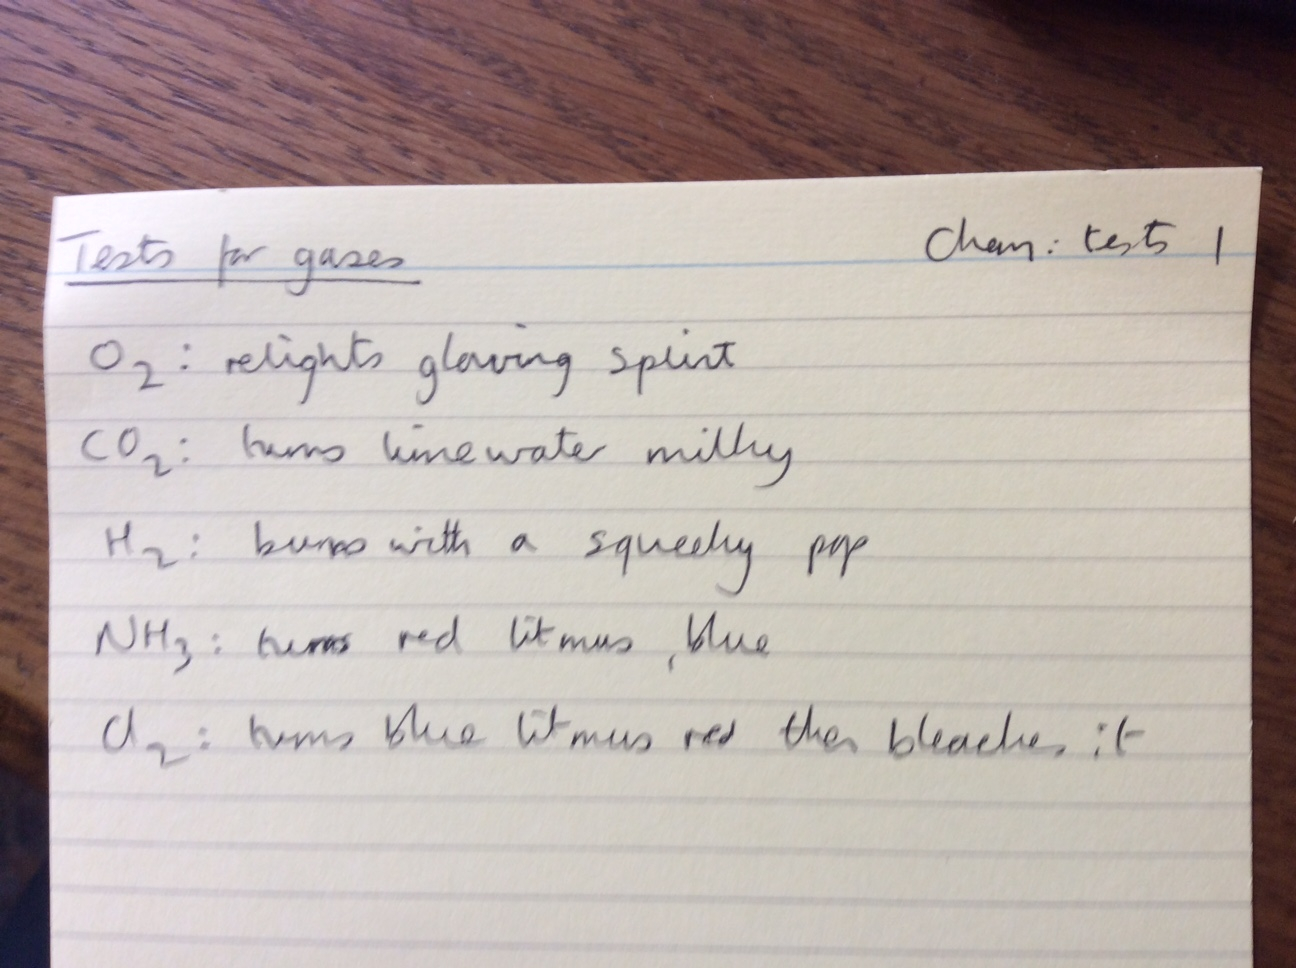 Tests for gases
Chem: tests 1
O₂: relights glowing splint
CO₂: turns limewater milky
H₂: burns with a squeeky pop
NH₃: turns red litmus, blue
Cl₂: turns blue litmus red then bleaches it